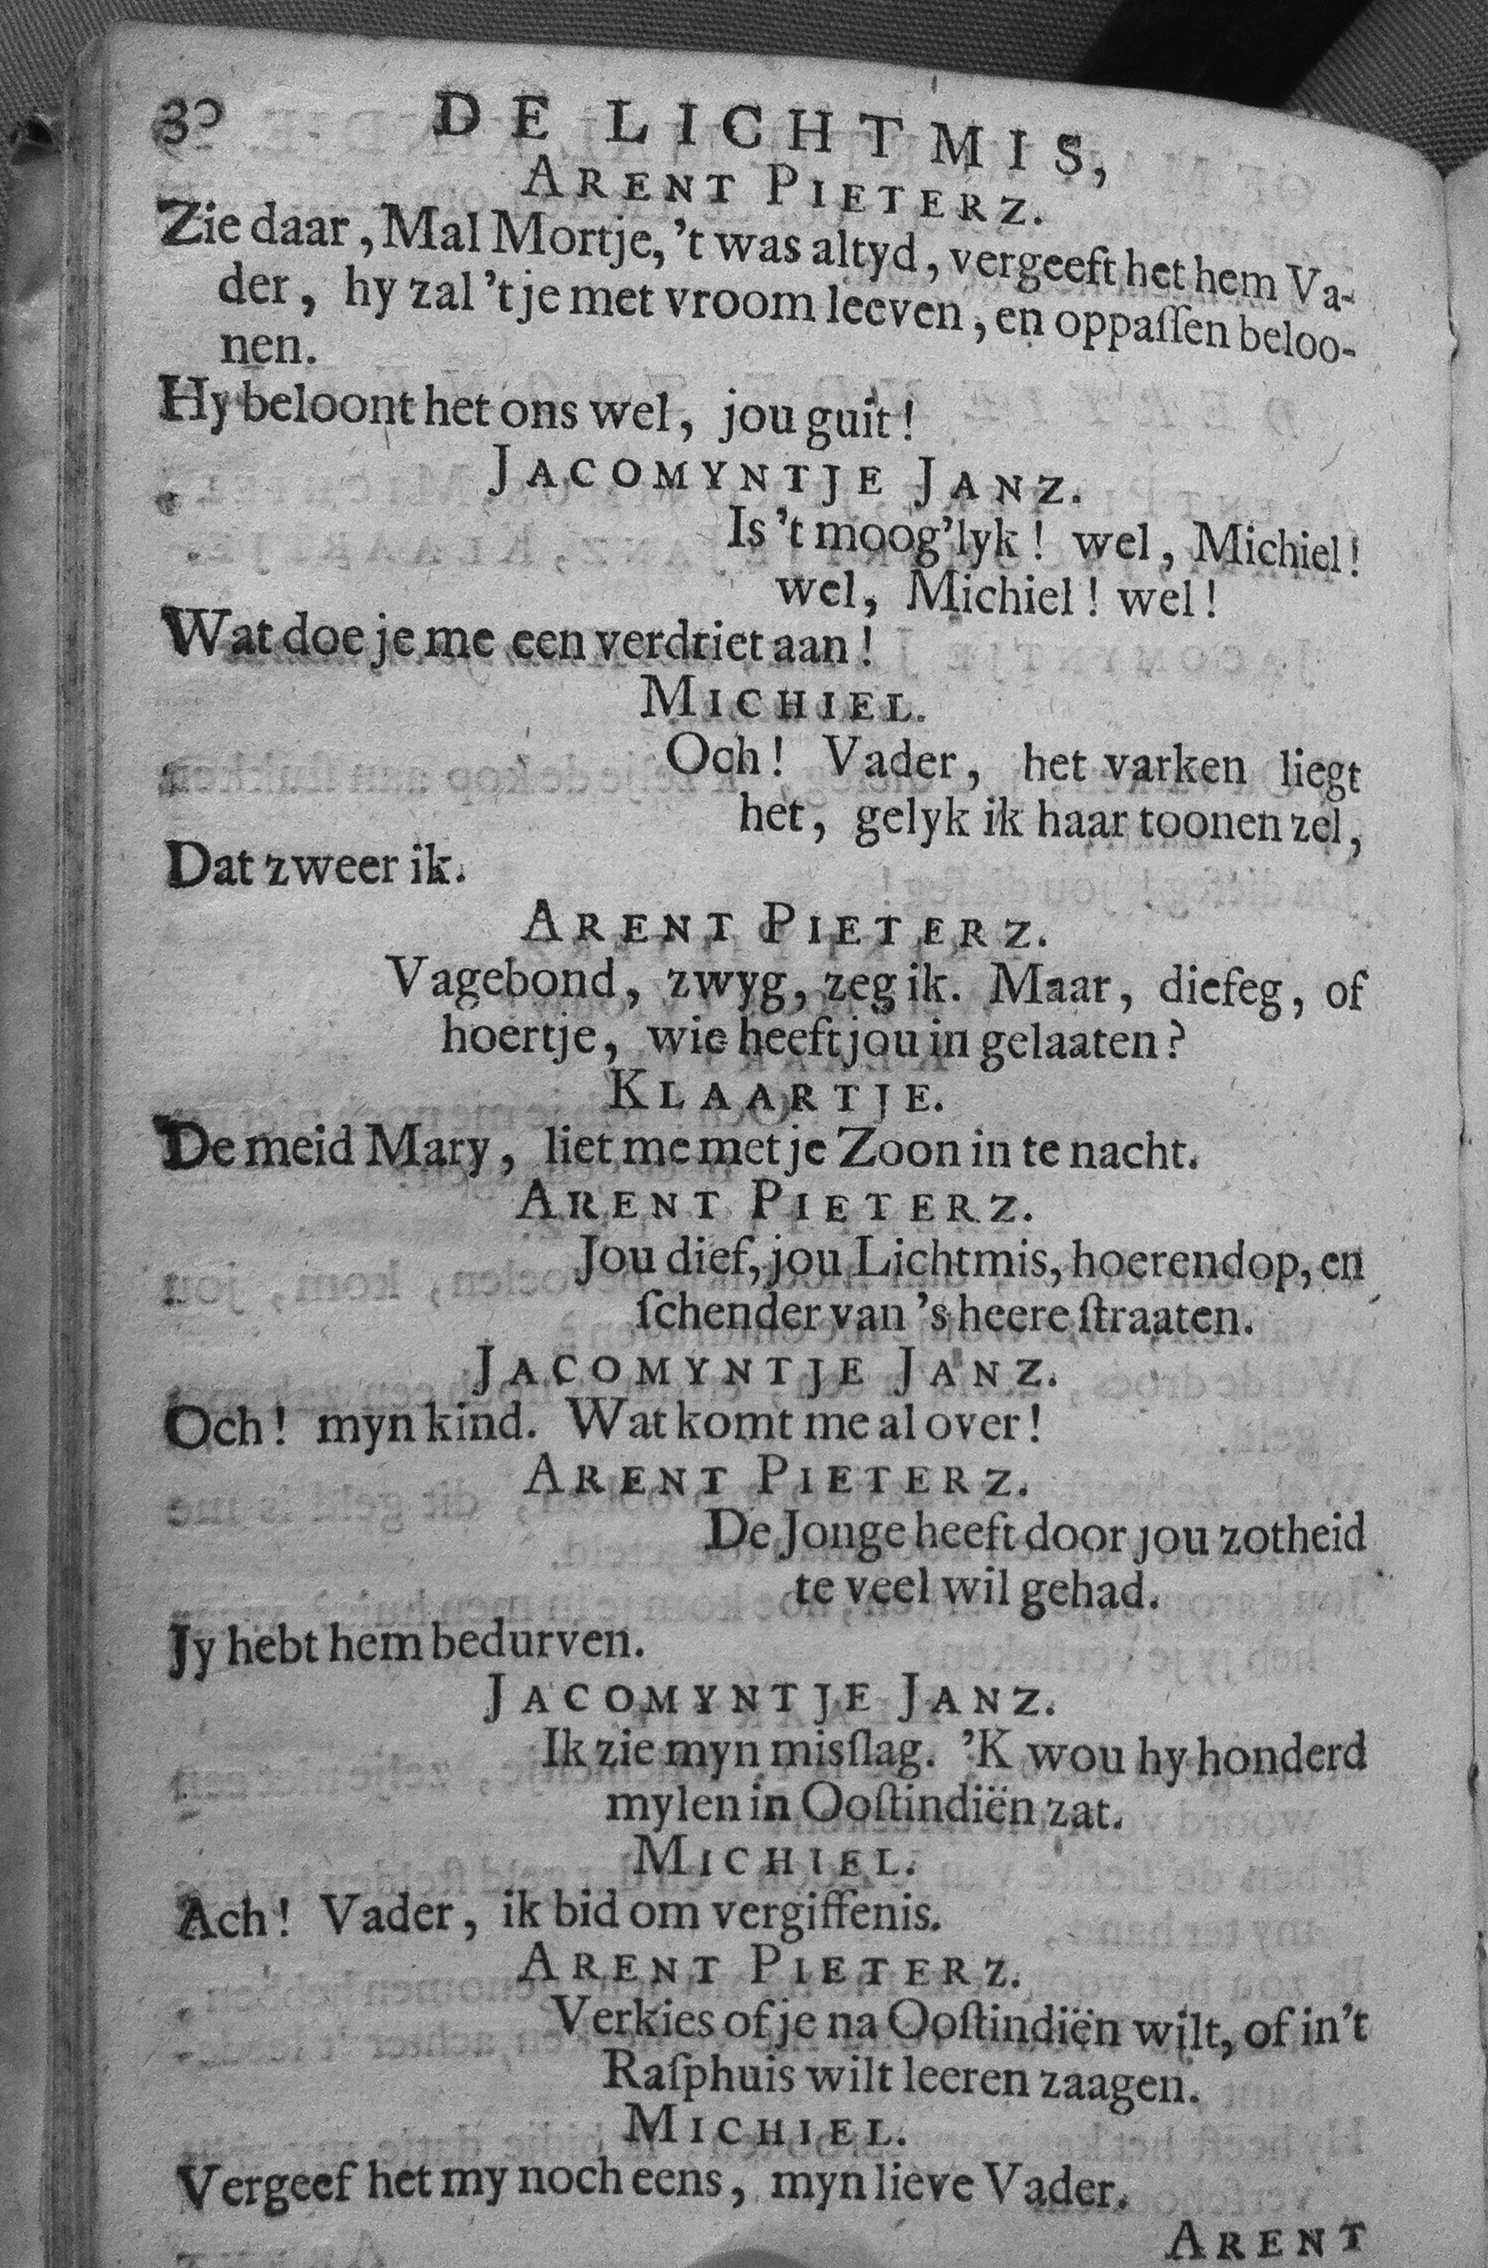 30 DE LICHTMIS,
ARENT PIETERZ.
Zie daar, Mal Mortje, 't was altyd, vergeeft het hem Va-
der, hy zal 't je met vroom leeven, en oppaſſen beloo-
nen.
Hy beloont het ons wel, jou guit!
JACOMYNTJE JANZ.
Is 't moog'lyk! wel, Michiel!
wel, Michiel! wel!
Wat doe je me een verdriet aan!
MICHIEL.
Och! Vader, het varken liegt
het, gelyk ik haar toonen zel,
Dat zweer ik.
ARENT PIETERZ.
Vagebond, zwyg, zeg ik. Maar, diefeg, of
hoertje, wie heeft jou in gelaaten?
KLAARTJE.
De meid Mary, liet me met je Zoon in te nacht.
ARENT PIETERZ.
Jou dief, jou Lichtmis, hoerendop, en
ſchender van 's heere ſtraaten.
JACOMYNTJE JANZ.
Och! myn kind. Wat komt me al over!
ARENT PIETERZ.
De Jonge heeft door jou zotheid
te veel wil gehad.
Jy hebt hem bedurven.
JACOMYNTJE JANZ.
Ik zie myn misſlag. 'K wou hy honderd
mylen in Ooſtindiën zat.
MICHIEL.
Ach! Vader, ik bid om vergiffenis.
ARENT PIETERZ.
Verkies of je na Ooſtindiën wilt, of in't
Raſphuis wilt leeren zaagen.
MICHIEL.
Vergeef het my noch eens, myn lieve Vader.
ARENT